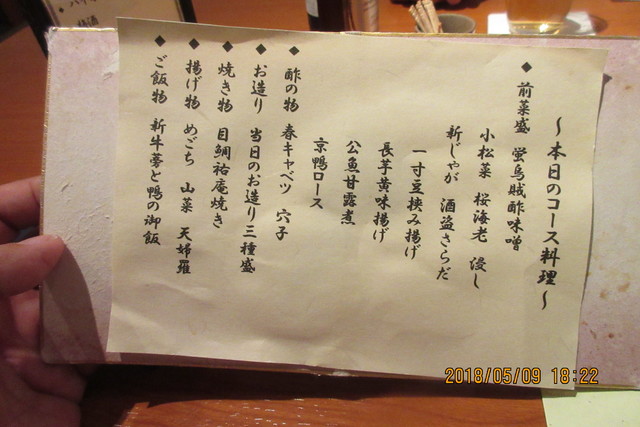 ～本日のコース料理～
◆前菜盛 蛍烏賊酢味噌
小松菜 桜海老 浸し
新じゃが 酒盗さらだ
一寸豆挟み揚げ
長芋黄味揚げ
公魚甘露煮
京鴨ロース
◆酢の物 春キャベツ 穴子
◆お造り 当日のお造り三種盛
◆焼き物 目鯛祐庵焼き
◆揚げ物 めごち 山菜 天婦羅
◆ご飯物 新牛蒡と鴨の御飯
2018/05/09 18:22